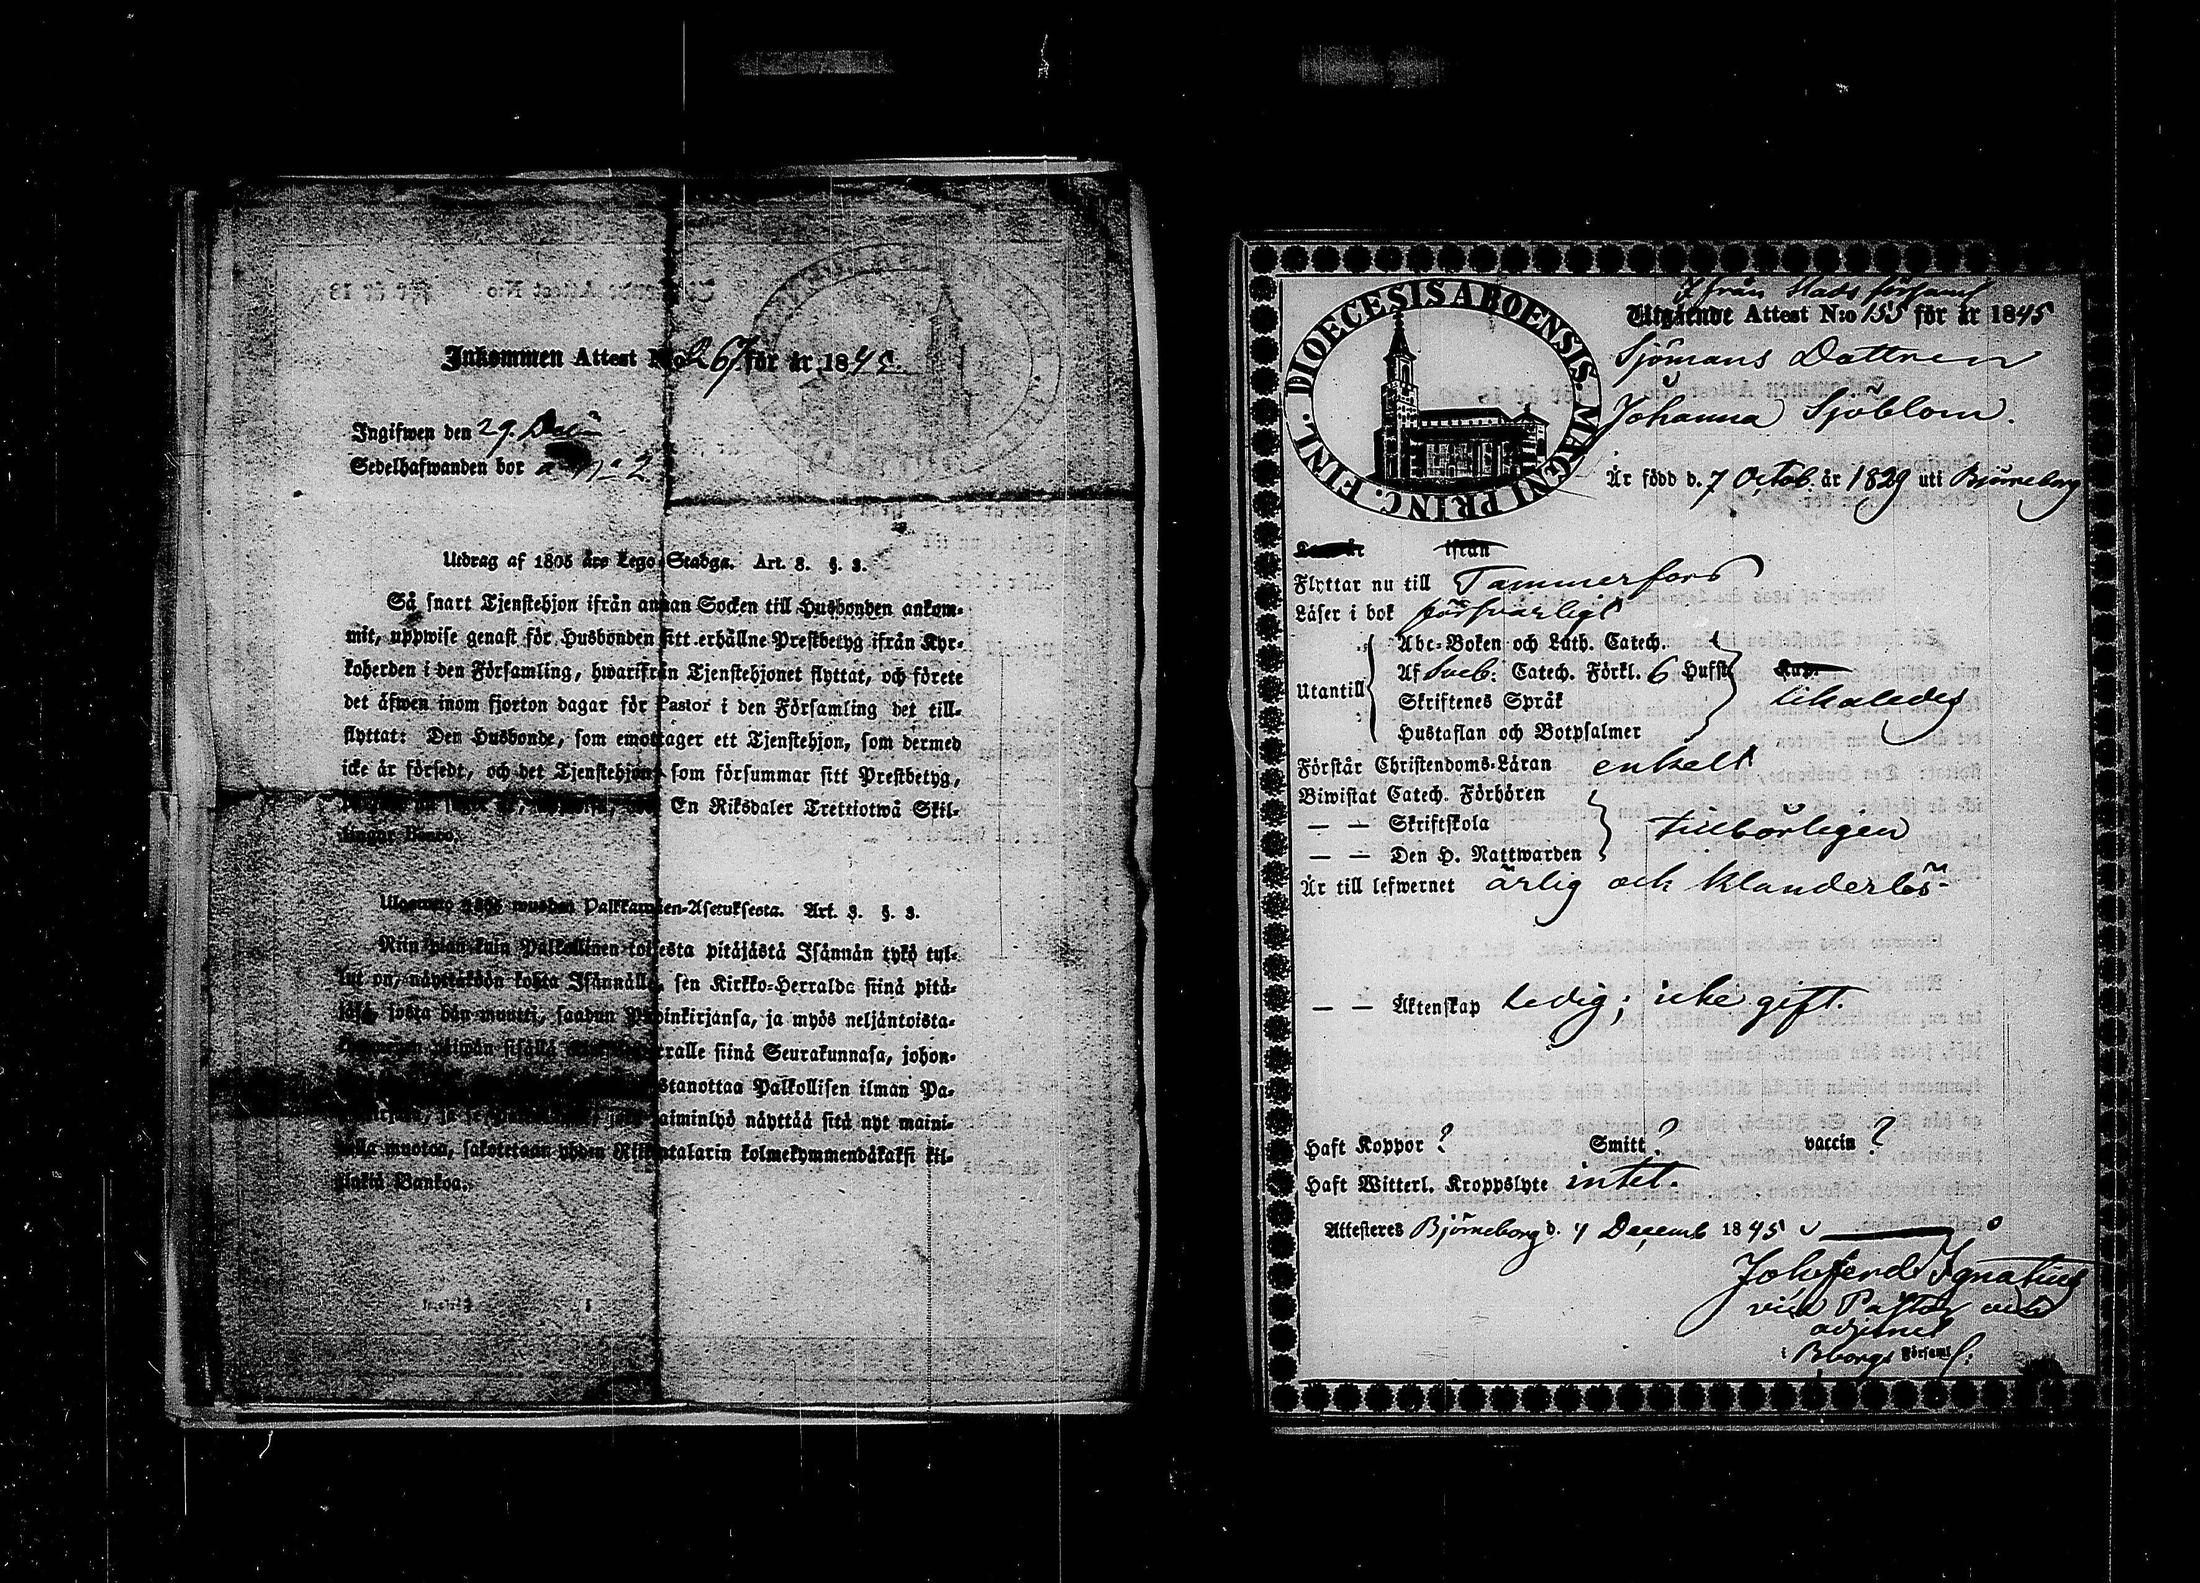 Inkommen Attest N:o 267 för år 1845.
Ingifwen den 29.
Sedelhafwanden bor
Utdrag af 1805 års Lego-Stadga. Art. 8. §. 3.
Så snart Tjenstehjon ifrån annan Socken till Husbonden ankom-
mit, uppwise genast för Husbonden sitt erhållne Prestbetyg ifrån Kyr-
koherden i den Församling, hwarifrån Tjenstehjonet flyttat, och förete
det äfwen inom fjorton dagar för Pastor i den Församling det till-
flyttat: Den Husbonde, som emottager ett Tjenstehjon, som dermed
icke är försedt, och det Tjenstehjon, som försummar sitt Prestbetyg,
En Riksdaler Trettiotwå Skil-
lingar Banco.
Ulosweto 1805 wuoden Palkkawäen-Asetuksesta. Art. 8. §. 3.
Niin pian kuin Palkollinen toisesta pitäjästä Isännän tykö tul-
lut on, näyttäköön kohta Isännälle, sen Kirkko-Herralda siinä pitä-
jäsä, josta hän muutti, saadun Papinkirjansa, ja myös neljäntoista-
siinä Seurakunnasa, johon-
Palkollisen ilman Pa-
laiminlyö näyttää sitä nyt maini-
tulla muotoa, sakotetaan yhden Riksintalarin kolmekymmendäkaksi kil-
lingiä Bankoa.
DIOECESIS ABOENSIS. MAGNI PRINC. FINL.
Ifrån Stads församl
Utgående Attest N:o 155 för år 1845
Sjömans Dottren
Johanna Sjöblom.
Är född d. 7 Octob. år 1829 uti Björneborg
ifrån
Flyttar nu till Tammerfors
Läser i bok försvarligt
Utantill
Abc-Boken och Luth. Catech.
Af Sveb: Catech. Förkl. 6 Hufst
Skriftenes Språk
likaledes
Hustaflan och Botpsalmer
Förstår Christendoms-Läran enkelt
Biwistat Catech. Förhören
— — Skriftskola
tillbörligen
— — Den H. Nattwarden
Är till lefwernet ärlig och klanderlös-
— — Äktenskap Ledig; icke gift.
Haft Koppor ? Smitt ? vaccin ?
Haft Witterl. Kroppslyte intet.
Attesteres Björneborg d. 4 Decemb 1845
Joh ferd Ignatius
vice Pastor och
adjunct
i Bborgs Församl: